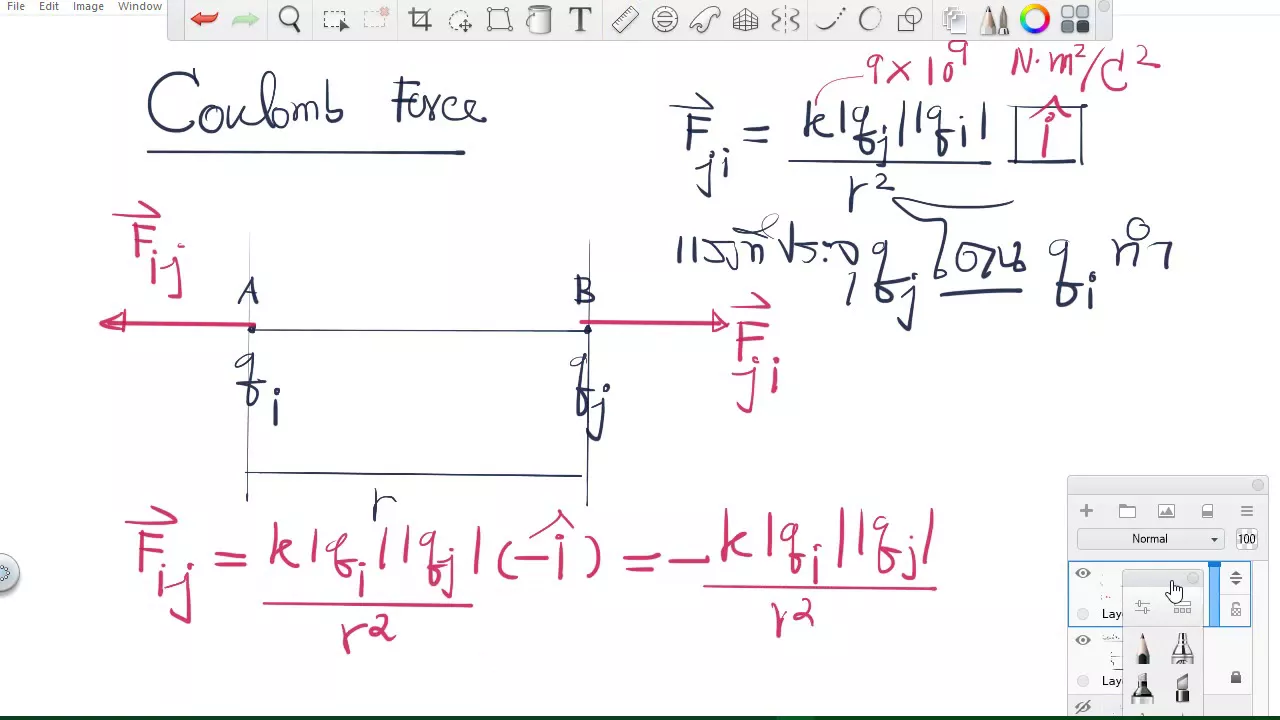 File Edit Image Window
Coulomb Force
9 × 10⁹ N·m²/C²
F⃗ji = k|qj||qi| / r² î
qj โดน qi ทำ
F⃗ij
A B
F⃗ji
qi qj
r
F⃗ij = k|qi||qj| / r² (-î) = -k|qi||qj| / r²
Normal 100